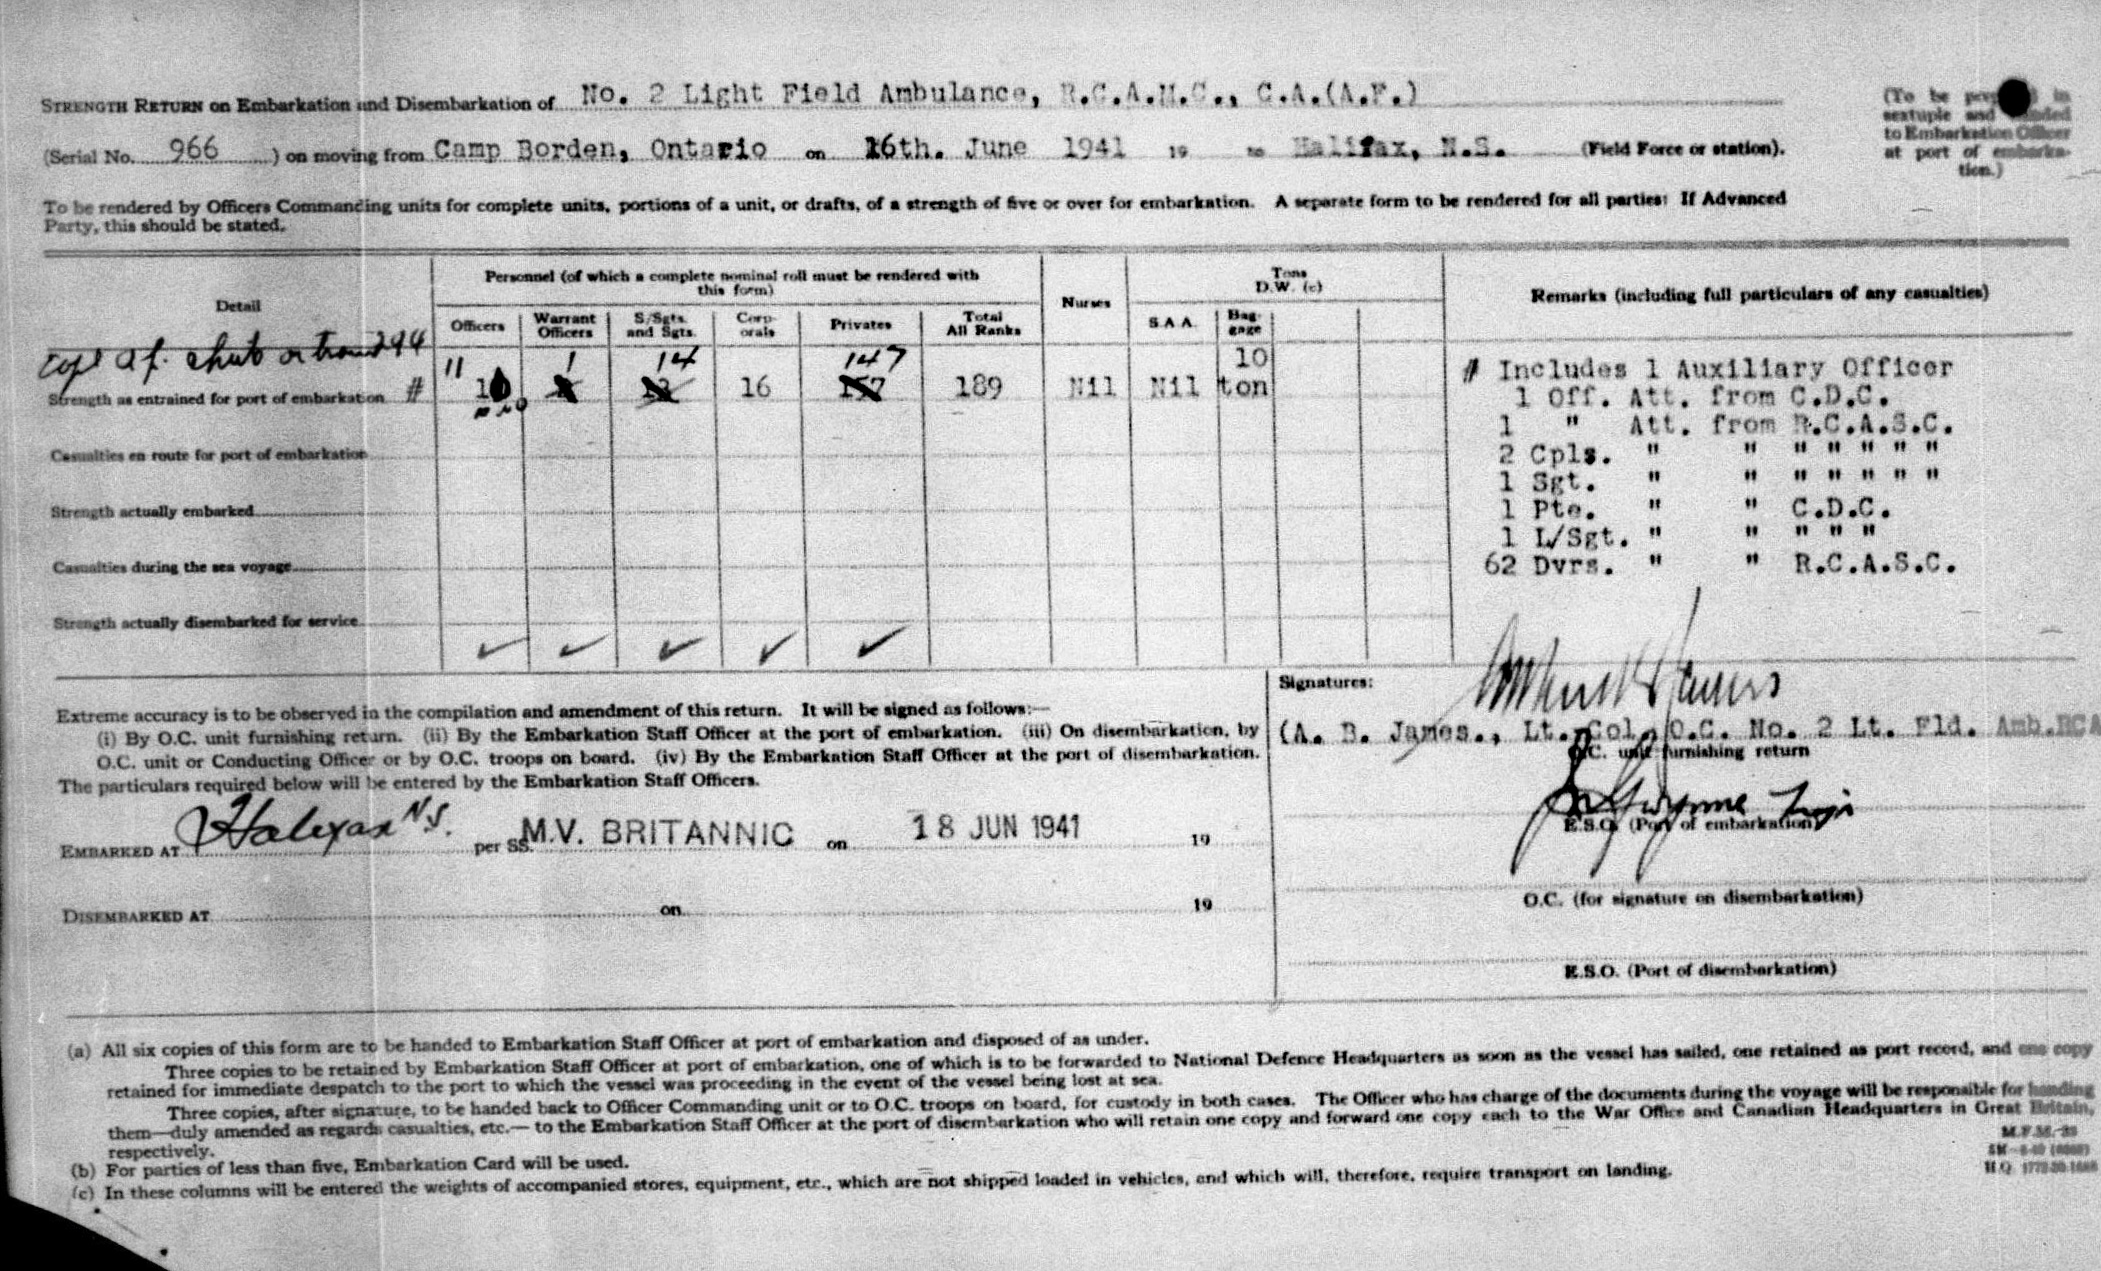 STRENGTH RETURN on Embarkation and Disembarkation of No. 2 Light Field Ambulance, R.C.A.M.C., C.A.(A.F.)
(To be in
sextuple and handed
to Embarkation Officer
at port of embarka-
tion.)
(Serial No. 966 ) on moving from Camp Borden, Ontario on 16th. June 1941 19 to Halifax, N.S. (Field Force or station).
To be rendered by Officers Commanding units for complete units, portions of a unit, or drafts, of a strength of five or over for embarkation. A separate form to be rendered for all parties: If Advanced
Party, this should be stated.
Detail
Personnel (of which a complete nominal roll must be rendered with
this form)
Officers
Warrant
Officers
S/Sgts.
and Sgts.
Corp-
orals
Privates
Total
All Ranks
Nurses
Tons
D.W. (c)
S.A.A.
Bag-
gage
Remarks (including full particulars of any casualties)
11 1 14 147 10
Strength as entrained for port of embarkation # 16 189 Nil Nil ton
Casualties en route for port of embarkation
Strength actually embarked
Casualties during the sea voyage
Strength actually disembarked for service
# Includes 1 Auxiliary Officer
1 Off. Att. from C.D.C.
1 " Att. from R.C.A.S.C.
2 Cpls. " " " " " " "
1 Sgt. " " " " " " "
1 Pte. " " C.D.C.
1 L/Sgt. " " " " "
62 Dvrs. " " R.C.A.S.C.
Extreme accuracy is to be observed in the compilation and amendment of this return. It will be signed as follows:—
(i) By O.C. unit furnishing return. (ii) By the Embarkation Staff Officer at the port of embarkation. (iii) On disembarkation, by
O.C. unit or Conducting Officer or by O.C. troops on board. (iv) By the Embarkation Staff Officer at the port of disembarkation.
The particulars required below will be entered by the Embarkation Staff Officers.
EMBARKED AT Halifax N.S. per SS. M.V. BRITANNIC on 18 JUN 1941 19
DISEMBARKED AT on 19
Signatures:
(A. B. James., Lt. Col. O.C. No. 2 Lt. Fld. Amb.RCA
O.C. unit furnishing return
E.S.O. (Port of embarkation)
O.C. (for signature on disembarkation)
E.S.O. (Port of disembarkation)
(a) All six copies of this form are to be handed to Embarkation Staff Officer at port of embarkation and disposed of as under.
Three copies to be retained by Embarkation Staff Officer at port of embarkation, one of which is to be forwarded to National Defence Headquarters as soon as the vessel has sailed, one retained as port record, and one copy
retained for immediate despatch to the port to which the vessel was proceeding in the event of the vessel being lost at sea.
Three copies, after signature, to be handed back to Officer Commanding unit or to O.C. troops on board, for custody in both cases. The Officer who has charge of the documents during the voyage will be responsible for handing
them—duly amended as regards casualties, etc.— to the Embarkation Staff Officer at the port of disembarkation who will retain one copy and forward one copy each to the War Office and Canadian Headquarters in Great Britain,
respectively.
(b) For parties of less than five, Embarkation Card will be used.
(c) In these columns will be entered the weights of accompanied stores, equipment, etc., which are not shipped loaded in vehicles, and which will, therefore, require transport on landing.